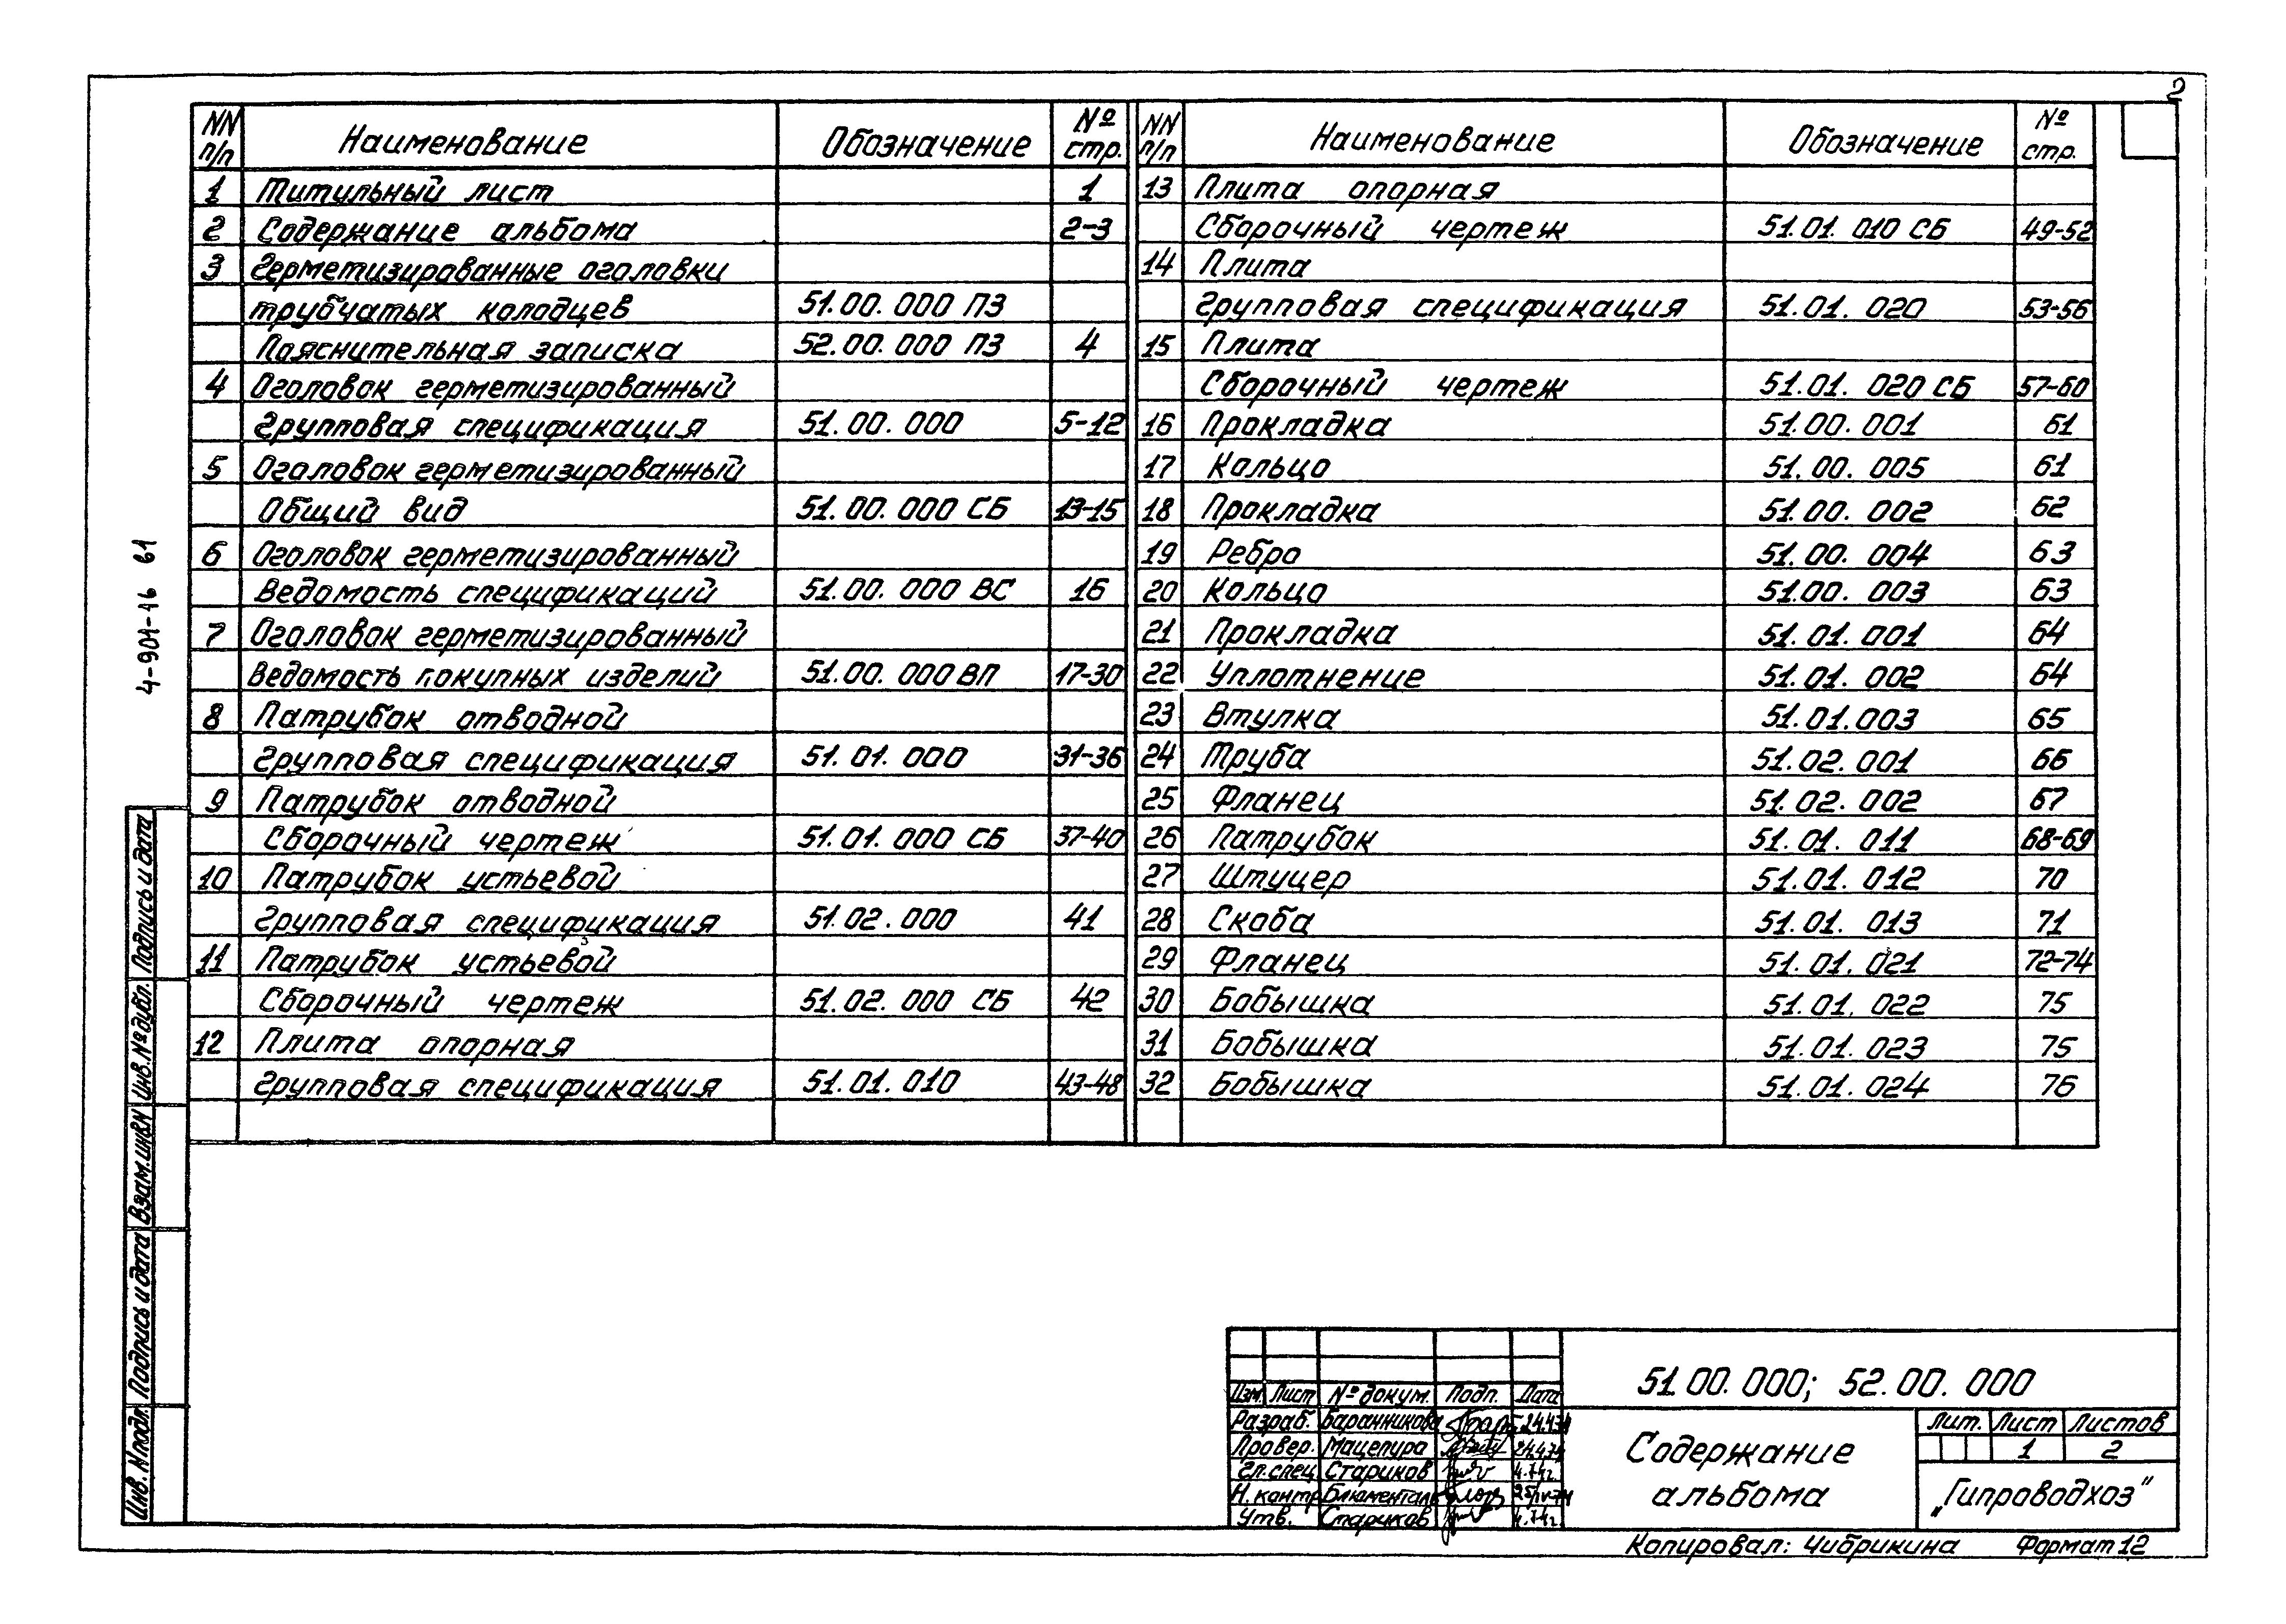 2
NN п/п Наименование Обозначение № стр.
1 Титульный лист 1
2 Содержание альбома 2-3
3 Герметизированные оголовки
трубчатых колодцев 51.00.000 ПЗ
Пояснительная записка 52.00.000 ПЗ 4
4 Оголовок герметизированный
Групповая спецификация 51.00.000 5-12
5 Оголовок герметизированный
Общий вид 51.00.000 СБ 13-15
6 Оголовок герметизированный
Ведомость спецификаций 51.00.000 ВС 16
7 Оголовок герметизированный
Ведомость покупных изделий 51.00.000 ВП 17-30
8 Патрубок отводной
Групповая спецификация 51.01.000 31-36
9 Патрубок отводной
Сборочный чертеж 51.01.000 СБ 37-40
10 Патрубок устьевой
Групповая спецификация 51.02.000 41
11 Патрубок устьевой
Сборочный чертеж 51.02.000 СБ 42
12 Плита опорная
Групповая спецификация 51.01.010 43-48
NN п/п Наименование Обозначение № стр.
13 Плита опорная
Сборочный чертеж 51.01.010 СБ 49-52
14 Плита
Групповая спецификация 51.01.020 53-56
15 Плита
Сборочный чертеж 51.01.020 СБ 57-60
16 Прокладка 51.00.001 61
17 Кольцо 51.00.005 61
18 Прокладка 51.00.002 62
19 Ребро 51.00.004 63
20 Кольцо 51.00.003 63
21 Прокладка 51.01.001 64
22 Уплотнение 51.01.002 64
23 Втулка 51.01.003 65
24 Труба 51.02.001 66
25 Фланец 51.02.002 67
26 Патрубок 51.01.011 68-69
27 Штуцер 51.01.012 70
28 Скоба 51.01.013 71
29 Фланец 51.01.021 72-74
30 Бобышка 51.01.022 75
31 Бобышка 51.01.023 75
32 Бобышка 51.01.024 76
4-901-16 61
Подпись и дата
Инв.№ дубл.
Взам.инв.N
Подпись и дата
Инв. Nподл.
Изм. Лист № докум. Подп. Дата
Разраб. Баранникова 24.4.74
Провер. Мацепура 24.4.74
Гл.спец. Стариков 4.74г.
Н. контр. Блюменталь 25/IV-74
Утв. Стариков 4.74г.
51.00.000; 52.00.000
Содержание
альбома
Лит. Лист Листов
1 2
„Гипроводхоз"
Копировал: Чибрикина Формат 12